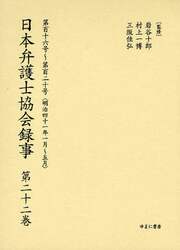 ［監修］
岩谷十郎
村上一博
三阪佳弘
第百十六号〜第百二十号（明治四十一年一月〜五月）
日本弁護士協会録事 第二十二巻
ゆまに書房